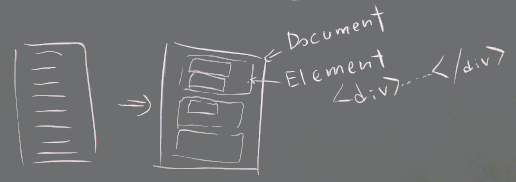 Document
Element
<div>......</div>